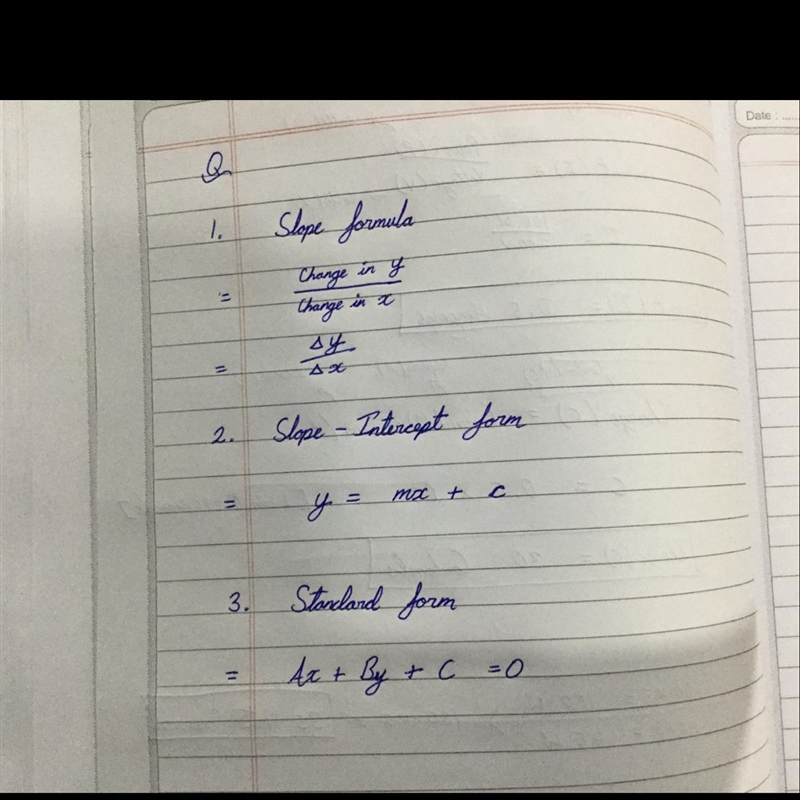 Date : .....
Q
1. Slope formula
= Change in y
Change in x
= Δy
Δx
2. Slope - Intercept form
= y = mx + c
3. Standard form
= Ax + By + C = 0